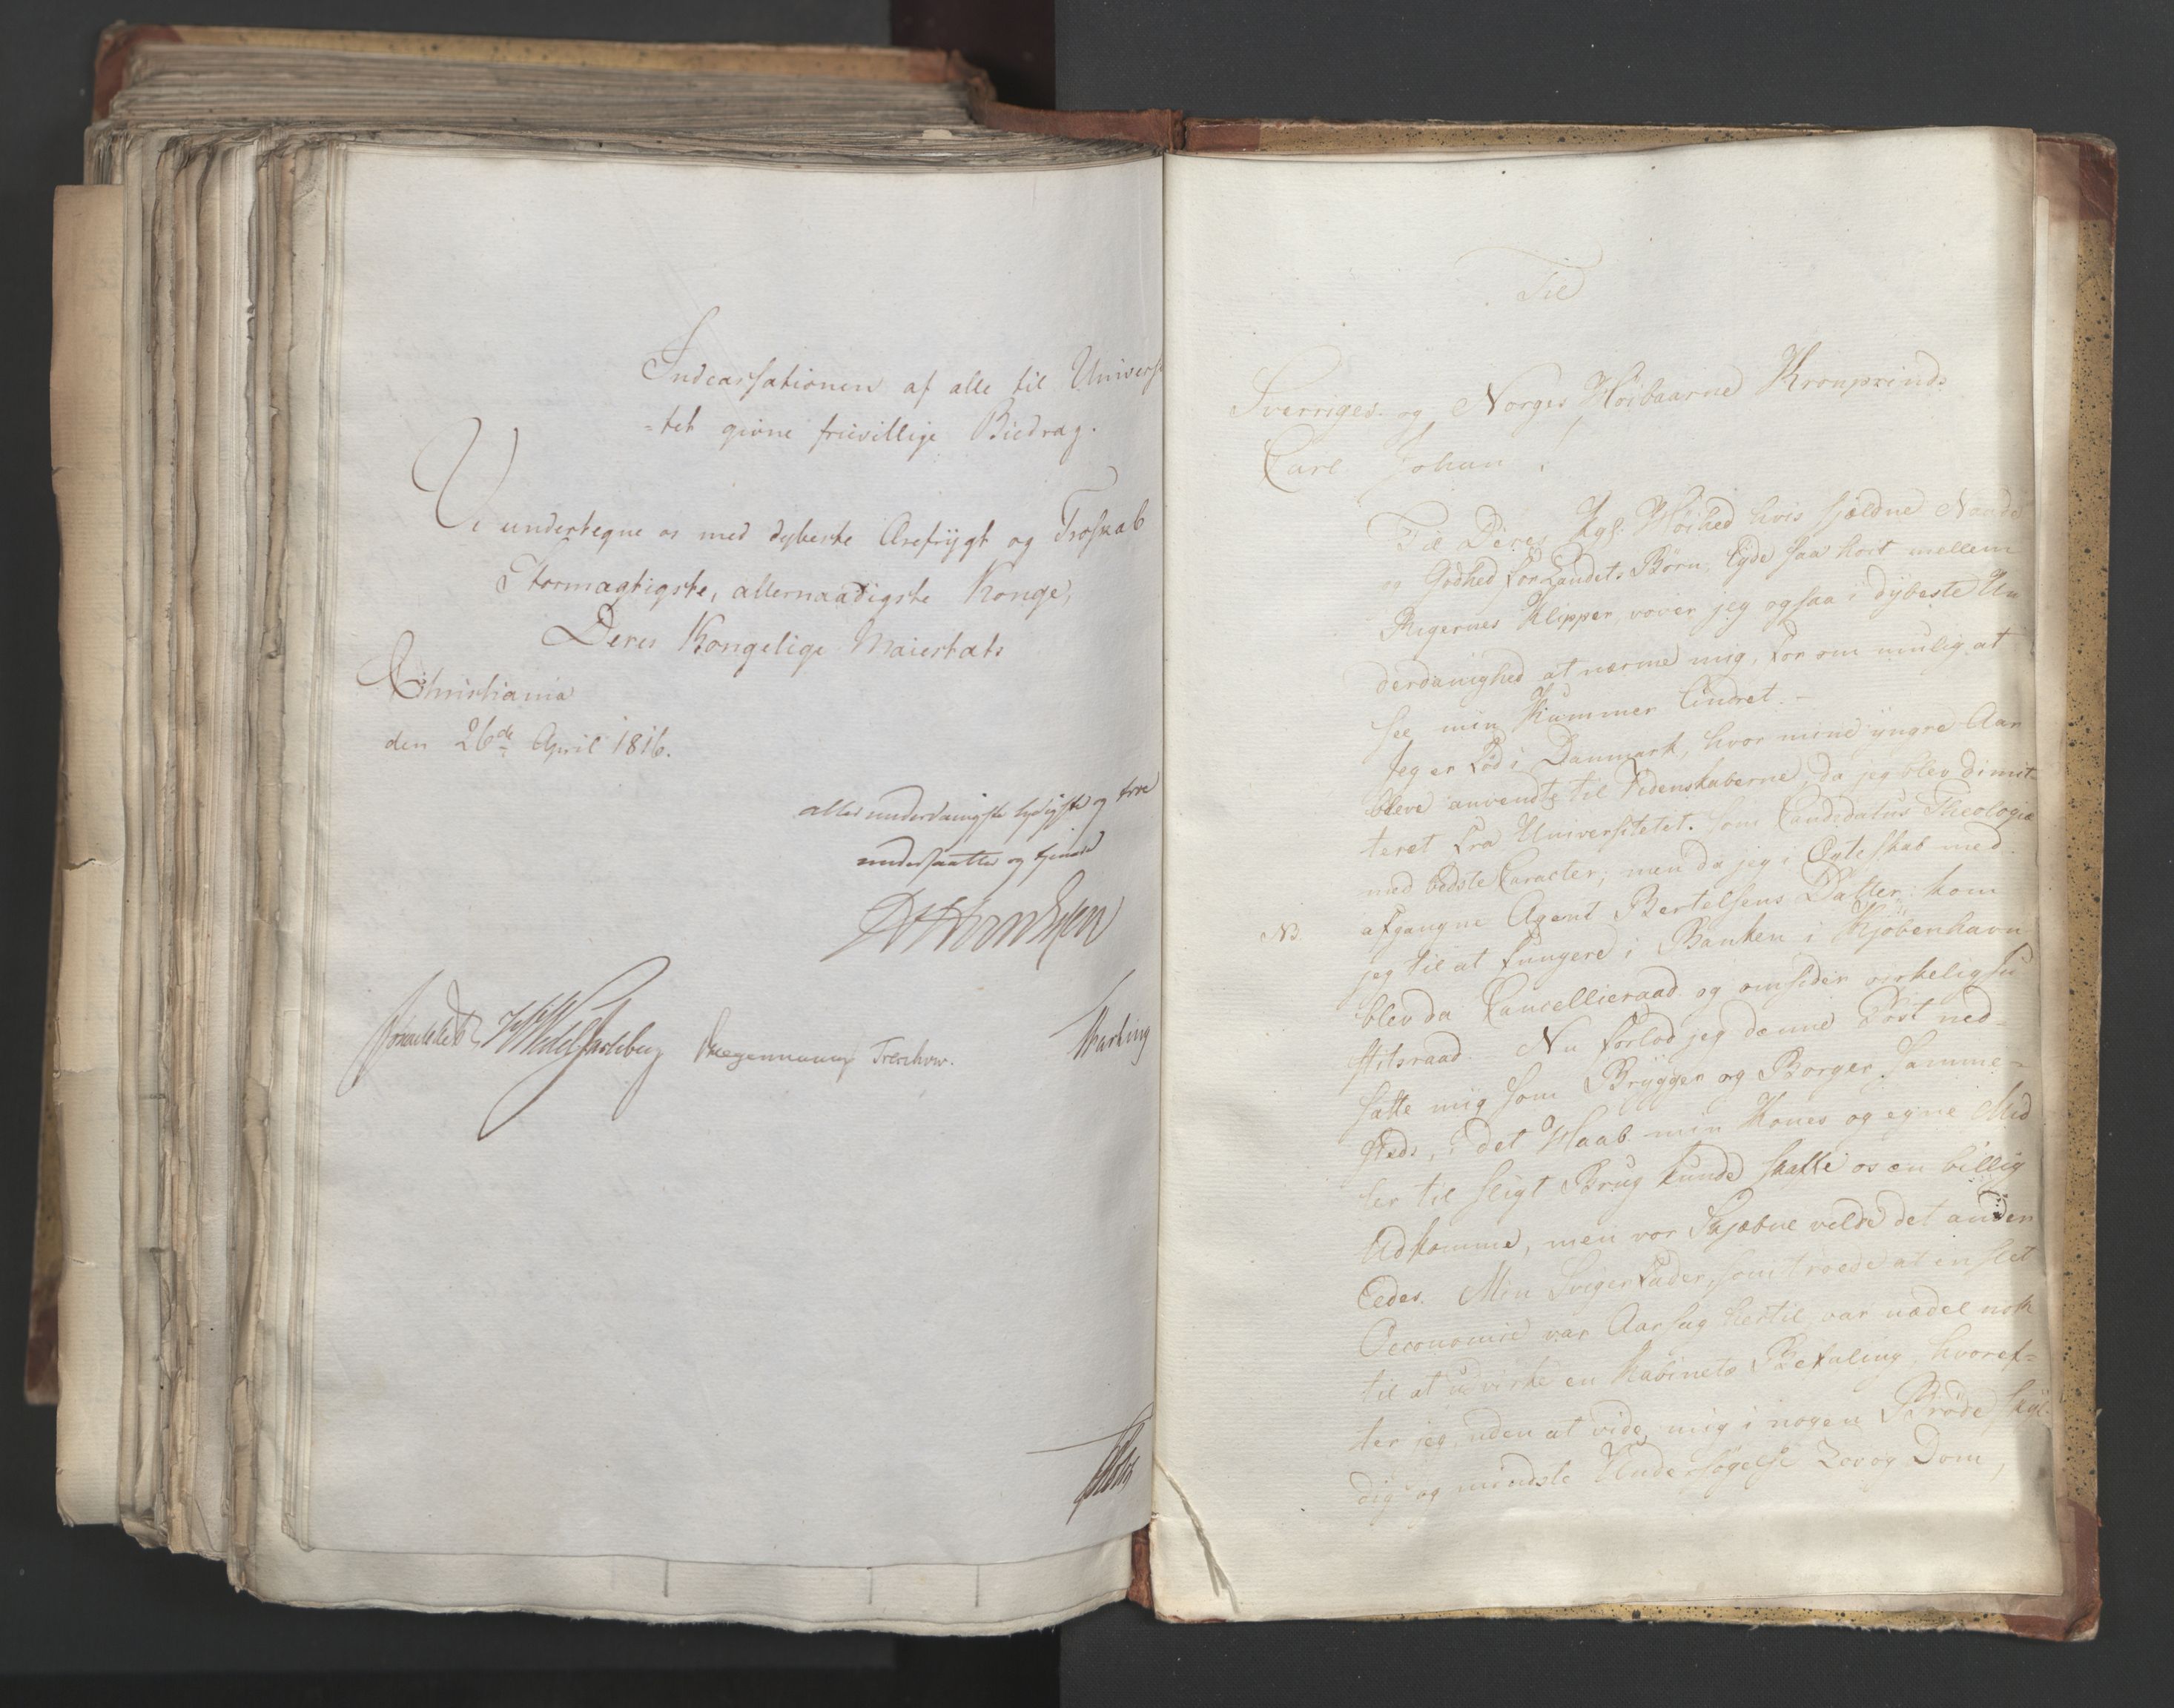 Indcassationen af alle til Universi
=tet givne frievillige Biedrag.
Vi undertegne os med dybeste Ærefrygt og Troskab
Stormægtigste, allernaadigste Konge,
Deres Kongelige Maiestæts
Christiania
den 26de April 1816.
allerunderdanigste lydigste og troe
undersaatter og tjenere
Sommerfeldt HWedelJarlsberg Diegermann Treschow.
Til
Sverriges og Norges Høibaarne Kronprinds
Carl Johan!
Til Deres Kgl. Høihed hvis sjældne Naade
og Godhed for Landets Børn, lyde saa høit mellem
Rigernes Klipper, vover jeg ogsaa i dybeste Un
derdanighed at nærme mig, for om mulig at
see min Kummer lindret. -
Jeg er fød i Danmark, hvor mine yngre Aar
bleve anvendte til Videnskaberne, da jeg blev dimit-
teret fra Universitetet som Candidatus Theologiæ
med bedste Caracter; men da jeg i Ægteskab med
NB. afgangne Agent Bertelsens Datter, kom
jeg til at fungere i Banken i Kjøbenhavn
blev da Cancellieraad og omsider virkelig Ju
stitsraad. Nu forlod jeg denne Post ned-
satte mig som Brygger og Borger samme-
steds, i det Haab min Kones og egne Mid
ler til sligt Brug kunde skaffe os en billig
Udkomme, men vor Skjæbne vilde det ander
ledes. Min Svigerfader, som troede at en slet
Oeconomie var Aarsag hertil, var uædel nok
til at udvirke en Kabinets Befaling, hvoref-
ter jeg, uden at vide mig i nogen Brøde skyl-
dig og mindste Undersøgelse Lov og Dom,